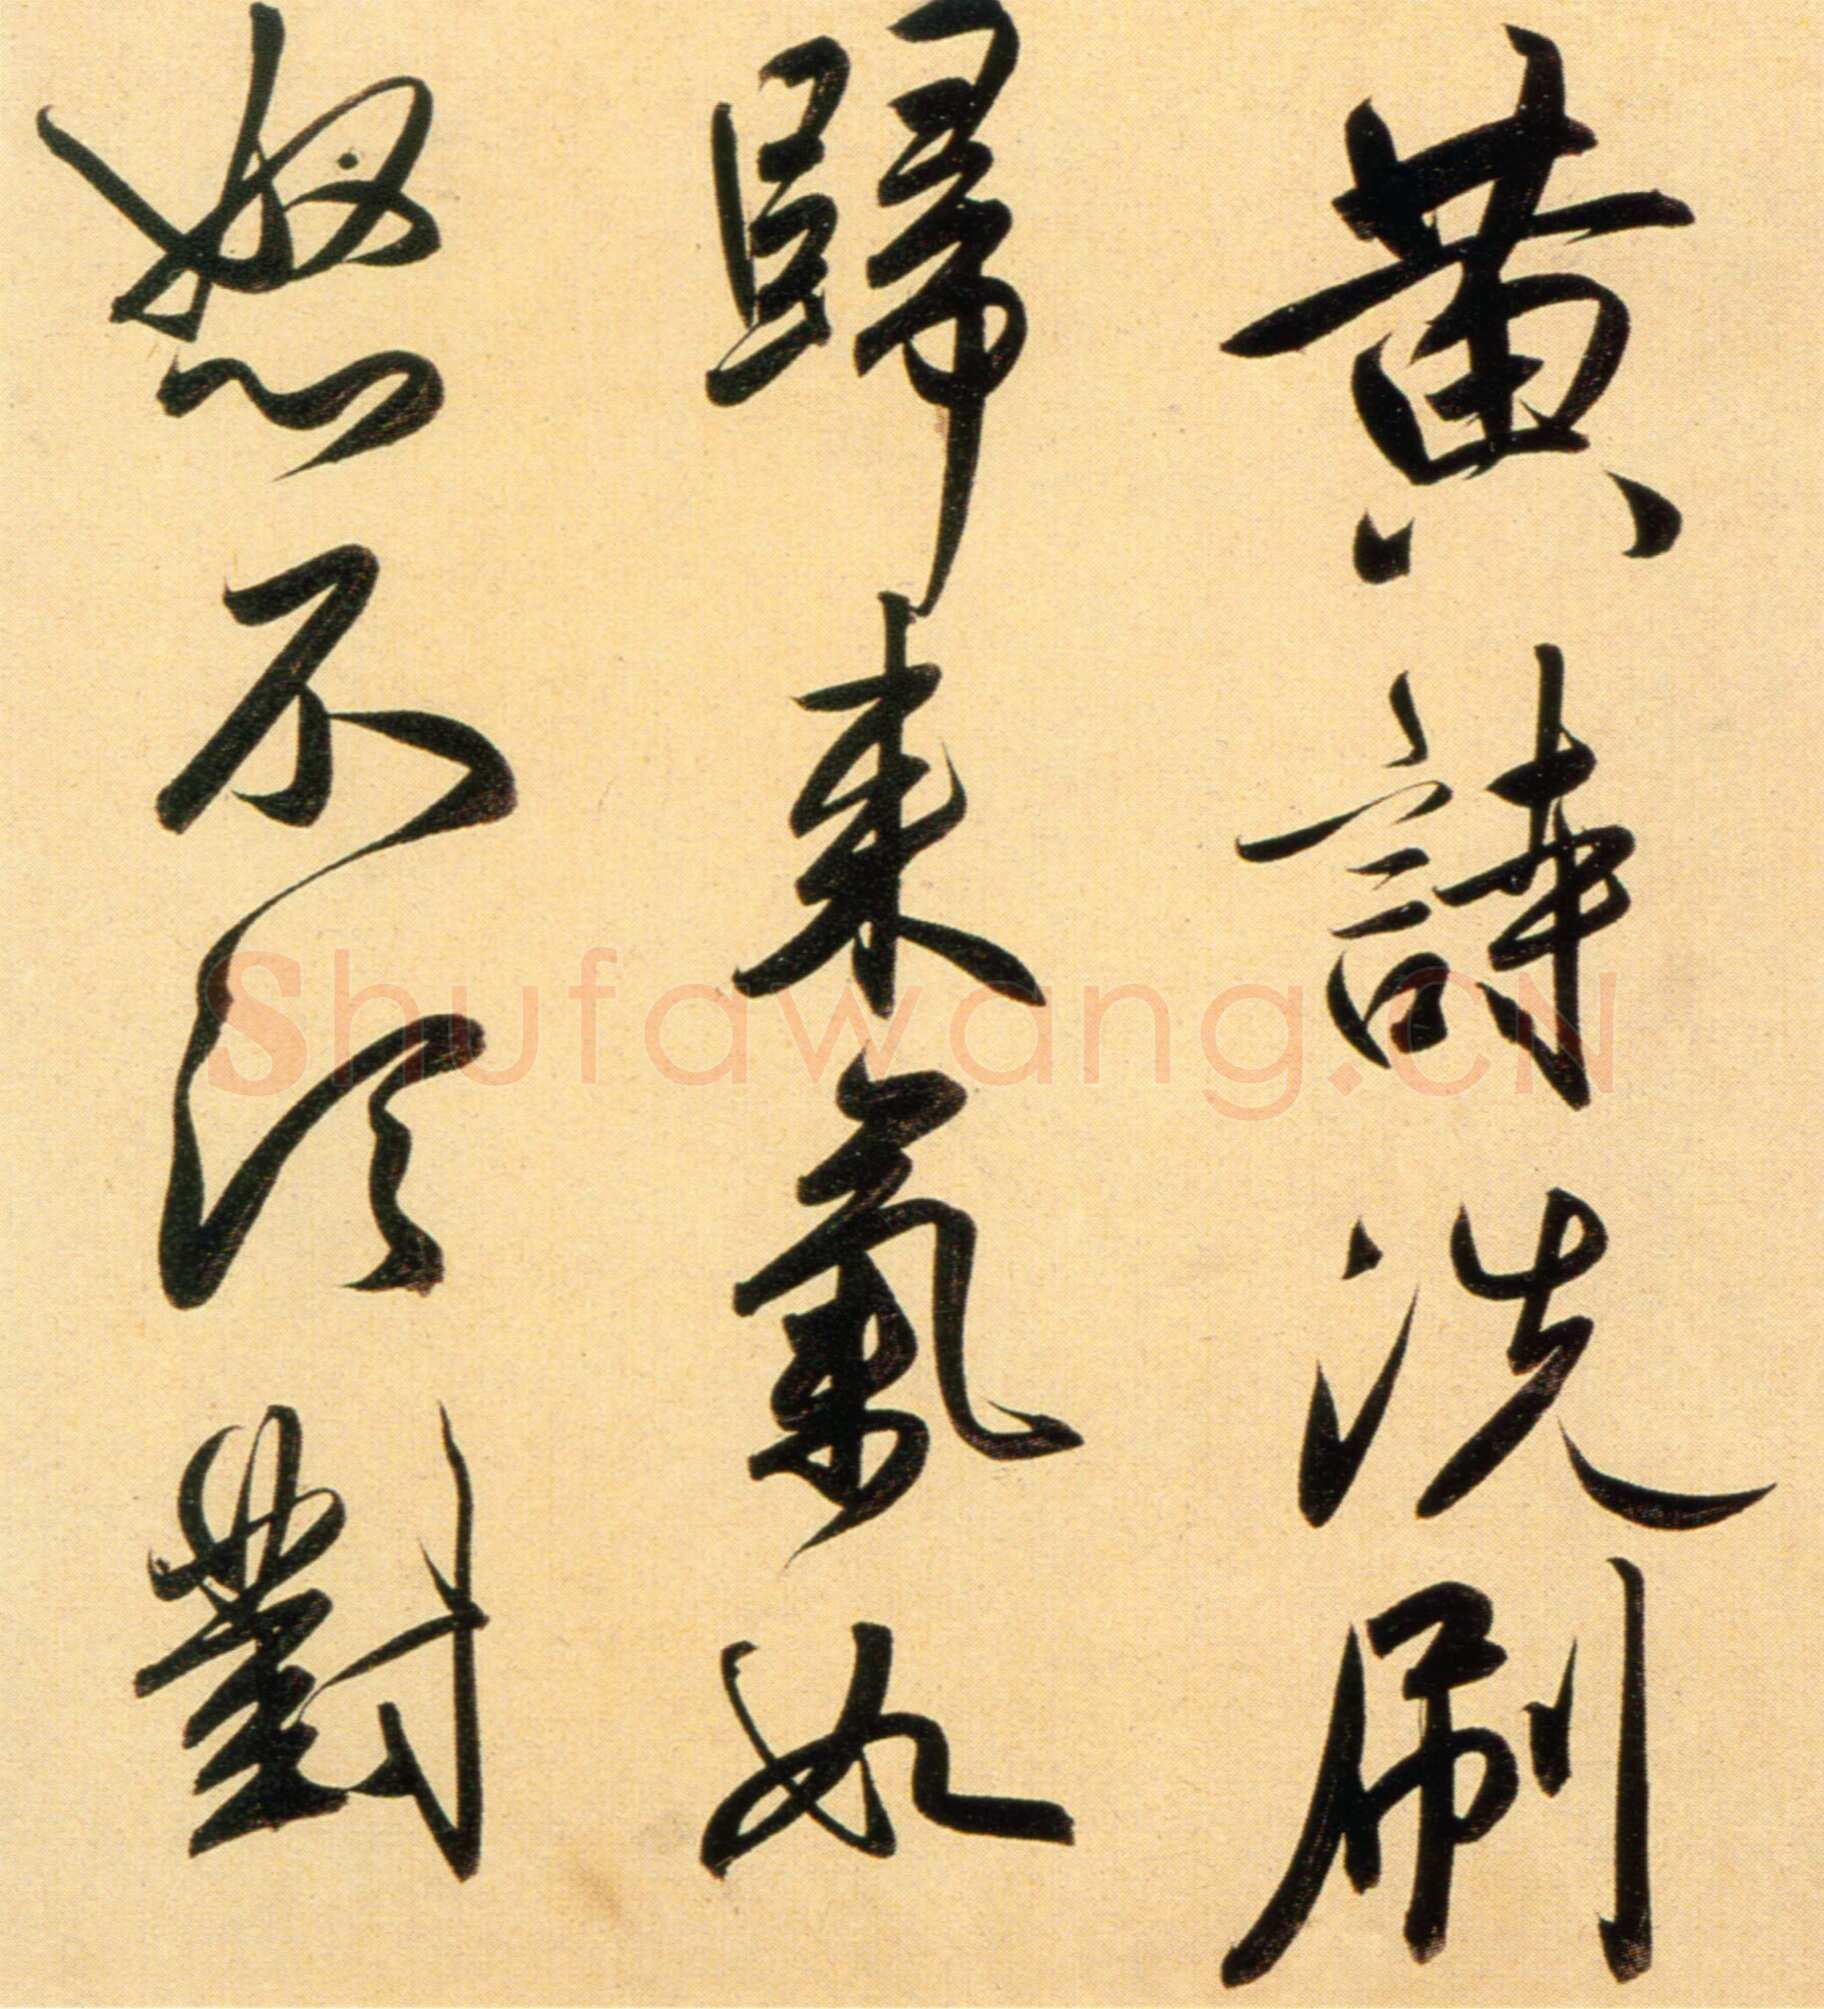 黄詩洗刷
歸来氣如
怒不須對
Shufawang.CN